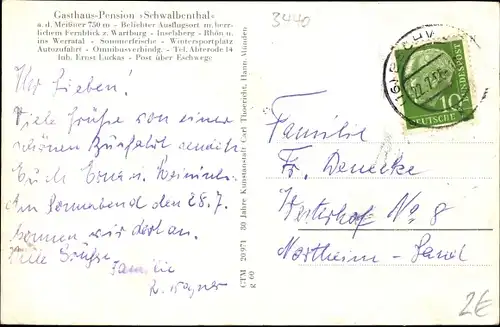 Gasthaus-Pension »Schwalbenthal«
a. d. Meißner 750 m - Beliebter Ausflugsort m. herr-
lichem Fernblick z. Wartburg - Inselsberg - Rhön u.
ins Werratal - Sommerfrische - Wintersportplatz
Autozufahrt - Omnibusverbindg. - Tel. Abterode 14
Inh. Ernst Luckas - Post über Eschwege
3440
Ihr Lieben!
Viele Grüße von einer
schönen Busfahrt sendet
Euch Erna u. Heinrich.
Am Sonnabend den 28.7.
kommen wir dort an.
Viele Grüße
Familie
R. Wagner
CTM 20971 80 Jahre Kunstanstalt Carl Thoericht, Hann. Münden
g 60
(16) ESCHW
10
DEUTSCHE BUNDESPOST
Familie
Fr. Denecke
Westerhof No 8
Northeim-Land
2€